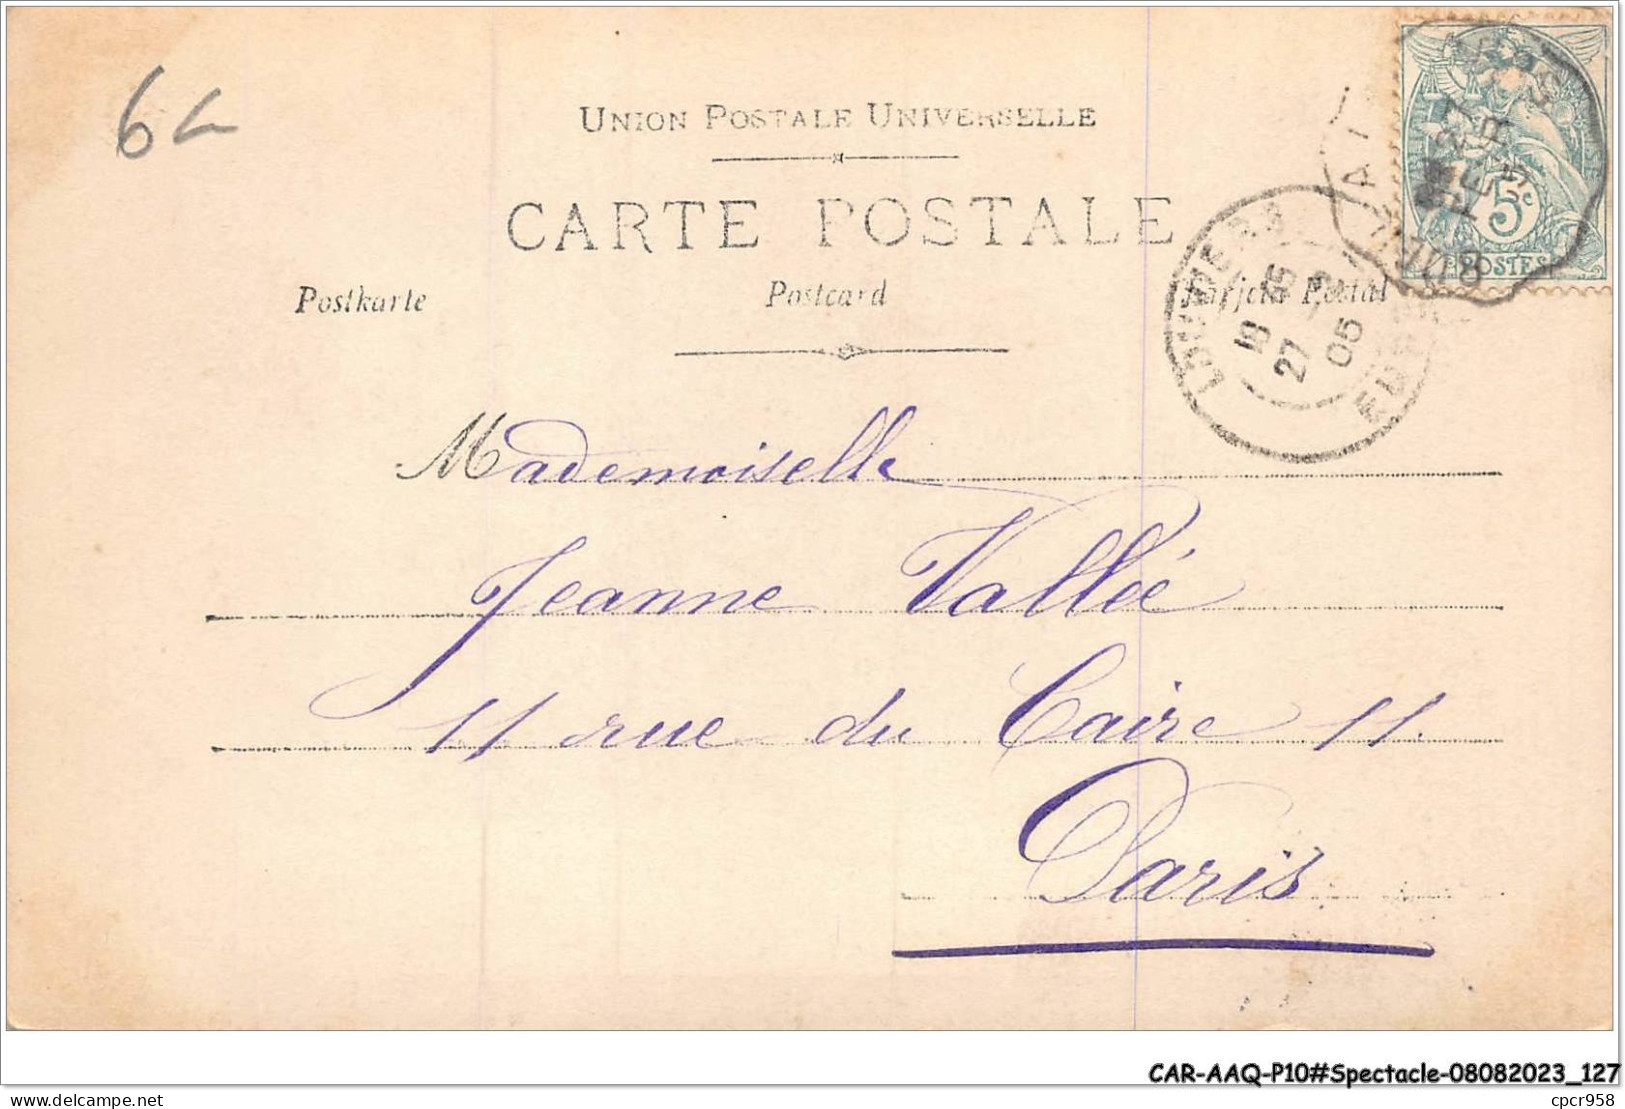 6
UNION POSTALE UNIVERSELLE
CARTE POSTALE
Postkarte Postcard Tarjeta Postal
LOUVIERS
18 15
27
05
EURE
5c
POSTES
Mademoiselle
Jeanne Vallée
11 rue du Caire 11.
Paris
CAR-AAQ-P10#Spectacle-08082023_127
cpcr958